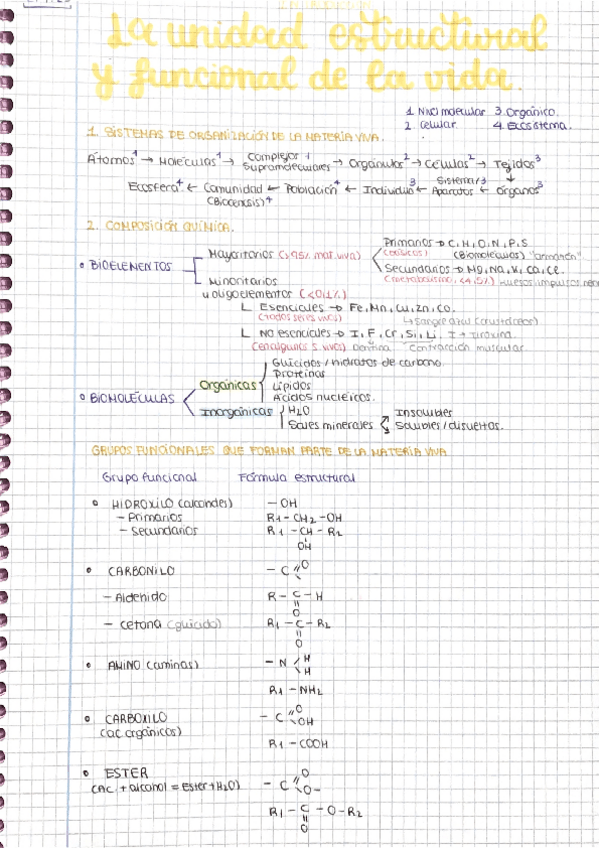 La unidad estructural
y funcional de la vida.
1. Nivel molecular 3. Orgánico.
2. Celular. 4. Ecosistema.
1. SISTEMAS DE ORGANIZACIÓN DE LA MATERIA VIVA.
Átomos¹ → Moléculas¹ → Complejos supramoleculares¹ → Orgánulos² → Células² → Tejidos³
Ecosfera⁴ ← Comunidad (Biocenosis)⁴ ← Población⁴ ← Individuo³ ← Sistema/Aparatos³ ← órganos³
2. COMPOSICIÓN QUÍMICA.
• BIOELEMENTOS
Mayoritarios (>95% mat. viva)
Primarios → C, H, O, N, P, S
(Biomoléculas)
Secundarios → Mg, Na, K, Ca, Ce.
Minoritarios
u oligoelementos (<0,1%)
Esenciales → Fe, Mn, Cu, Zn, Co.
(todos seres vivos) ↳ Sangre azul (crustáceos)
No esenciales → I, F, Cr, Si, Li, I → tiroxina.
(en algunos s. vivos) Dentina contracción muscular.
• BIOMOLÉCULAS
Orgánicas
Glúcidos / hidratos de carbono.
Proteínas
Lípidos
Ácidos nucleicos.
Inorgánicas
H₂O
Sales minerales
Insolubles
Solubles / disueltas.
GRUPOS FUNCIONALES QUE FORMAN PARTE DE LA MATERIA VIVA
Grupo funcional Fórmula estructural
• HIDROXILO (alcoholes) — OH
– Primarios R1 – CH2 – OH
– Secundarios R1 – CH – R2
OH
• CARBONILO – C = O
– Aldehido R – C – H
O
– Cetona (glúcido) R1 – C – R2
O
• AMINO (aminas) – N H
H
R1 – NH2
• CARBOXILO – C O
OH
(ac. orgánicos)
R1 – COOH
• ESTER – C O
O–
(AC + alcohol = Ester + H2O)
R1 – C – O – R2
O